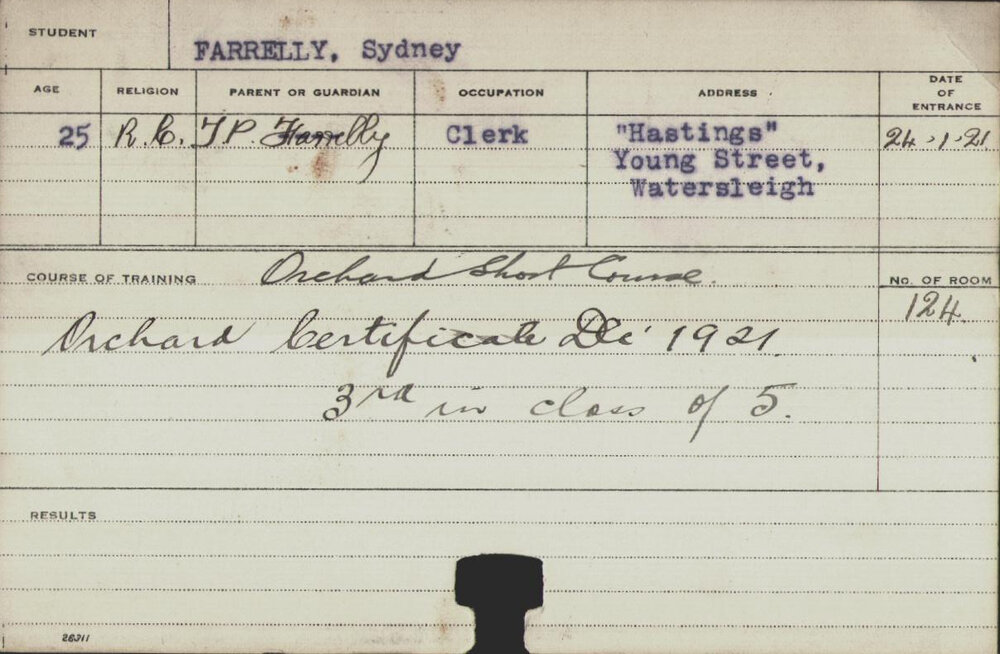 STUDENT
FARRELLY, Sydney
AGE
RELIGION
PARENT OR GUARDIAN
OCCUPATION
ADDRESS
DATE OF ENTRANCE
25
R.C.
T.P. Farrelly
Clerk
"Hastings"
Young Street,
Watersleigh
24.1.21
COURSE OF TRAINING
Orchard Short Course.
No. OF ROOM
124.
Orchard Certificate Dec' 1921.
3rd in class of 5.
RESULTS
26311